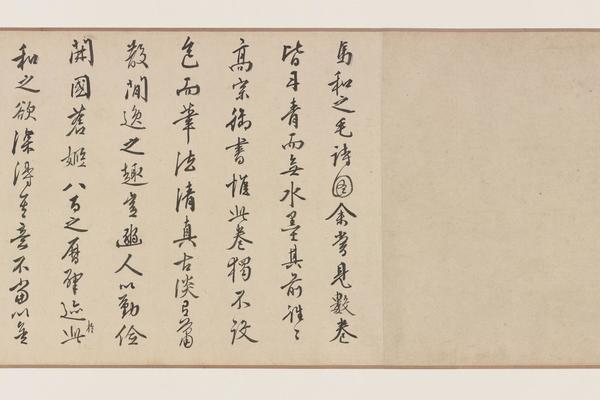 馬和之毛詩圖余嘗見數卷
皆丹青而無水墨其前
高宗御書惟此卷獨不設
色而筆法清真古淡有蕭
散閒逸之趣豈豳人以勤儉
開國蒼姬八百之曆肇迹於此
和之欲深得其意不當以無